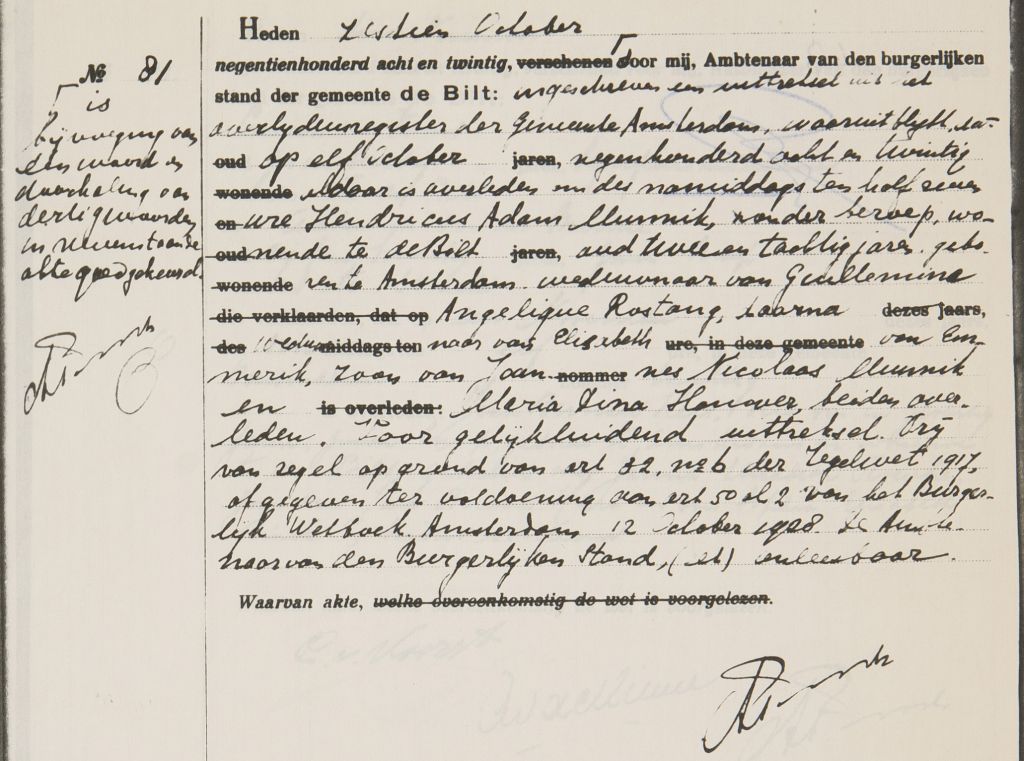 Heden zestien October
No 81
negentienhonderd acht en twintig, verschenen door mij, Ambtenaar van den burgerlijken
stand der gemeente de Bilt: ingeschreven een uittreksel uit het
overlydensregister der Gemeente Amsterdam, waaruit blykt, dat
oud op elf October jaren, negenhonderd acht en twintig
wonende aldaar is overleden en des namiddags ten half zeven
en ure Hendricus Adam Munnik, zonder beroep, wo-
oud nende te de Bilt jaren, oud twee en tachtig jaren, gebo-
wonende ren te Amsterdam weduwnaar van Guillemina
die verklaarden, dat op Angelique Rostang, daarna dezes jaars,
des weduw middags ten naar van Elisabeth ure, in deze gemeente van Em-
merik, zoon van Joan nommer nes Nicolaas Munnik
en is overleden: Maria Dina Hanover, beiden over-
leden. Voor gelijkluidend uittreksel. Vrij
van zegel op grond van art 32, no 6 der Zegelwet 1917,
afgegeven ter voldoening aan art 50 al 2 van het Burger-
lijk Wetboek Amsterdam 12 October 1928 De Ambte-
naar van den Burgerlijken Stand, (get) onleesbaar.
Waarvan akte, welke overeenkomstig de wet is voorgelezen.
is
bijvoeging van
één woord en
doorhaling van
dertig woorden
in nevenstaande
akte goedgekeurd.